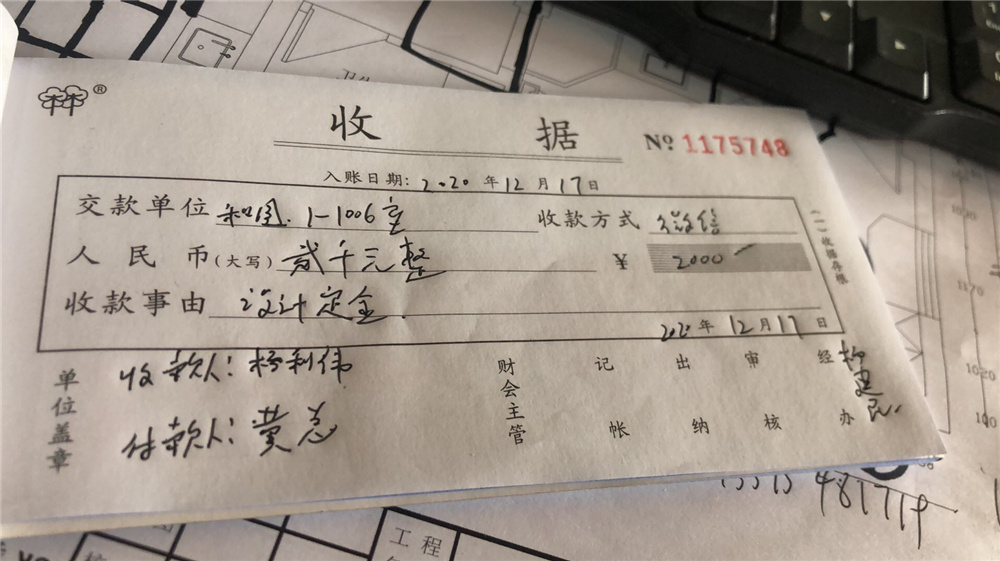 收 据 № 1175748
入账日期: 2020 年 12 月 17 日
交款单位 和园. 1-1006室 收款方式 微信
人民币(大写) 贰千元整 ¥ 2000
收款事由 设计定金.
2020 年 12 月 17 日
(一)收据存根
单位盖章
收款人: 杨利伟
付款人: 黄总
财会主管 记帐 出纳 审核 经办
481719
工程